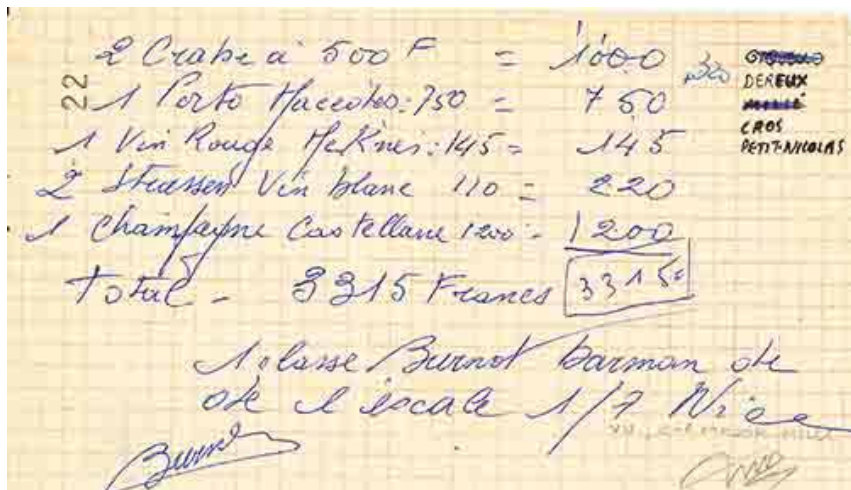 2 Crabe à 500 F = 1000
1 Porto : 750 = 750
1 Vin Rouge Meknes : 145 = 145
2 Vin blanc 110 = 220
1 Champagne Castellane 1200 = 1200
Total - 3315 Francs 3315
1 classe Burnot barman de
de l'escale 1/7 Nice
22
DEREUX
CROS
PETIT-NICOLAS